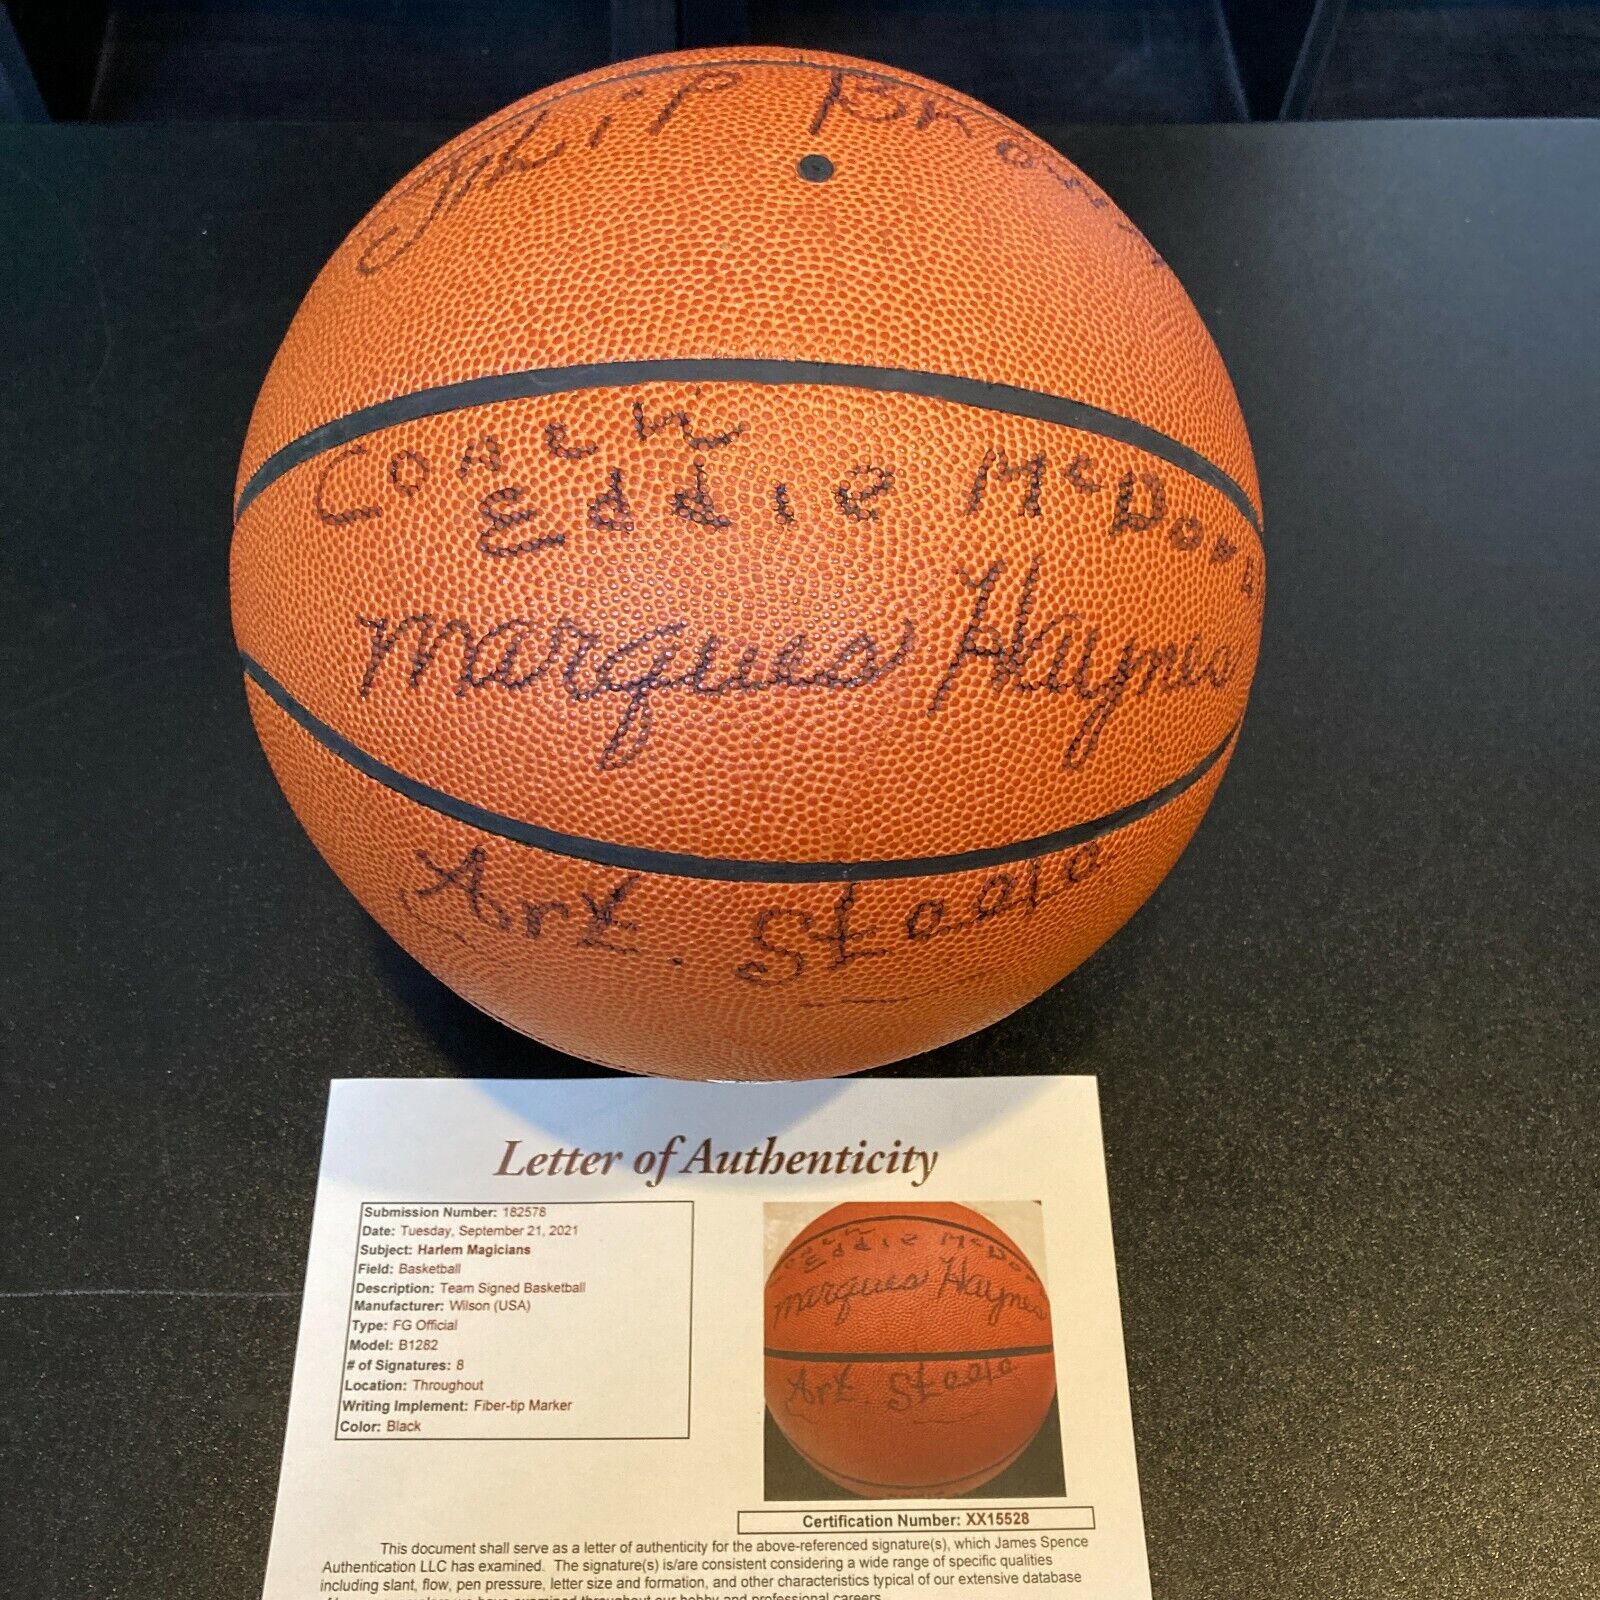 Brown
Eddie McDona
Marques Haynes
Art.
Letter of Authenticity
Submission Number: 182578
Date: Tuesday, September 21, 2021
Subject: Harlem Magicians
Field: Basketball
Description: Team Signed Basketball
Manufacturer: Wilson (USA)
Type: FG Official
Model: B1282
# of Signatures: 8
Location: Throughout
Writing Implement: Fiber-tip Marker
Color: Black
Eddie McDon
Marques Haynes
Art.
Certification Number: XX15528
This document shall serve as a letter of authenticity for the above-referenced signature(s), which James Spence
Authentication LLC has examined. The signature(s) is/are consistent considering a wide range of specific qualities
including slant, flow, pen pressure, letter size and formation, and other characteristics typical of our extensive database
throughout our hobby and professional careers.